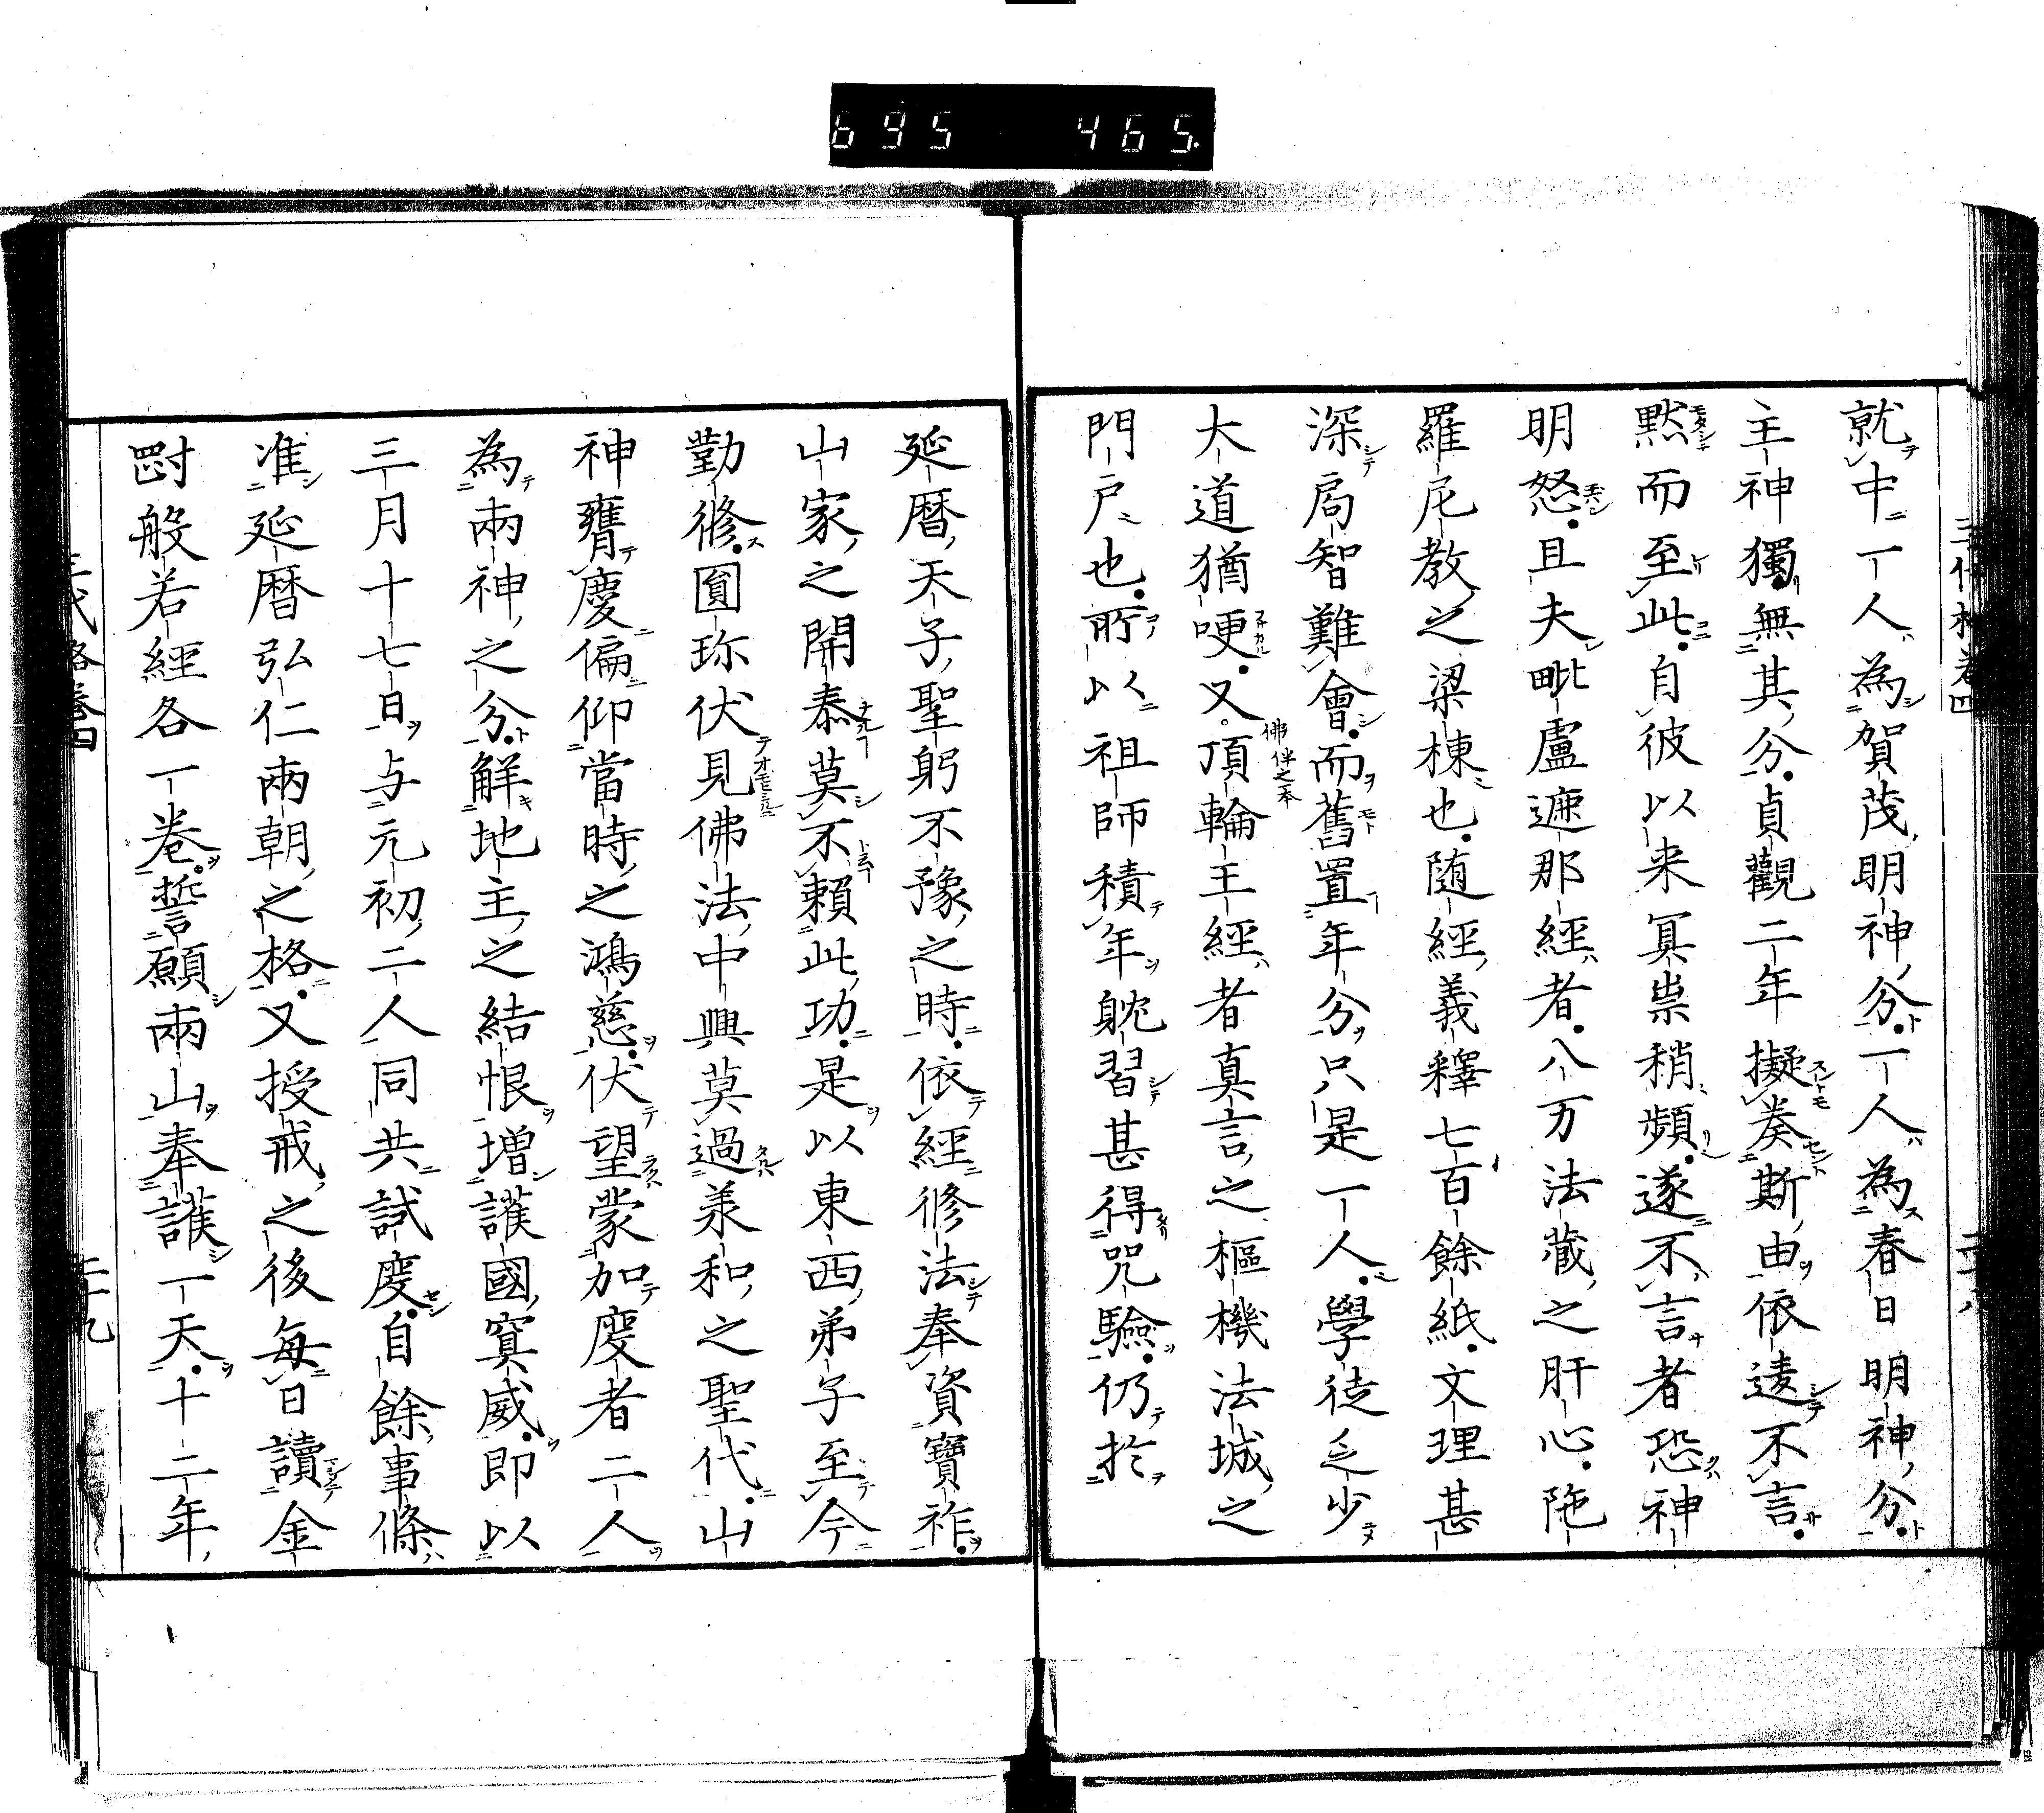 695 465.
就中一人為賀茂明神分一人為春日明神分
主神獨無其分貞觀二年擬奏斯由依違不言
黙而至此自彼以来冥祟稍頻遂不言者恐神
明怒且夫毗盧遮那經者八万法蔵之肝心陁
羅尼教之梁棟也随經義釋七百餘紙文理甚
深局智難會而舊置年分只是一人學徒乏少
大道猶哽又頂輪王經者真言之樞機法城之
門戸也所以祖師積年躭習甚得咒驗仍於
延暦天子聖躬不豫之時依經修法奉資寶祚
山家之開泰莫不頼此功是以東西弟子至今
勤修圎珎伏見佛法中興莫過羕和之聖代山
神贋慶偏仰當時之鴻慈伏望蒙加度者二人
為兩神之分觧地主之結恨増護國冥威即以
三月十七日与元初二人同共試度自餘事條
准延暦弘仁兩朝之格又授戒之後毎日讀金
罸般若經各一巻誓願兩山奉護一天十二年
三代格巻四
二十九